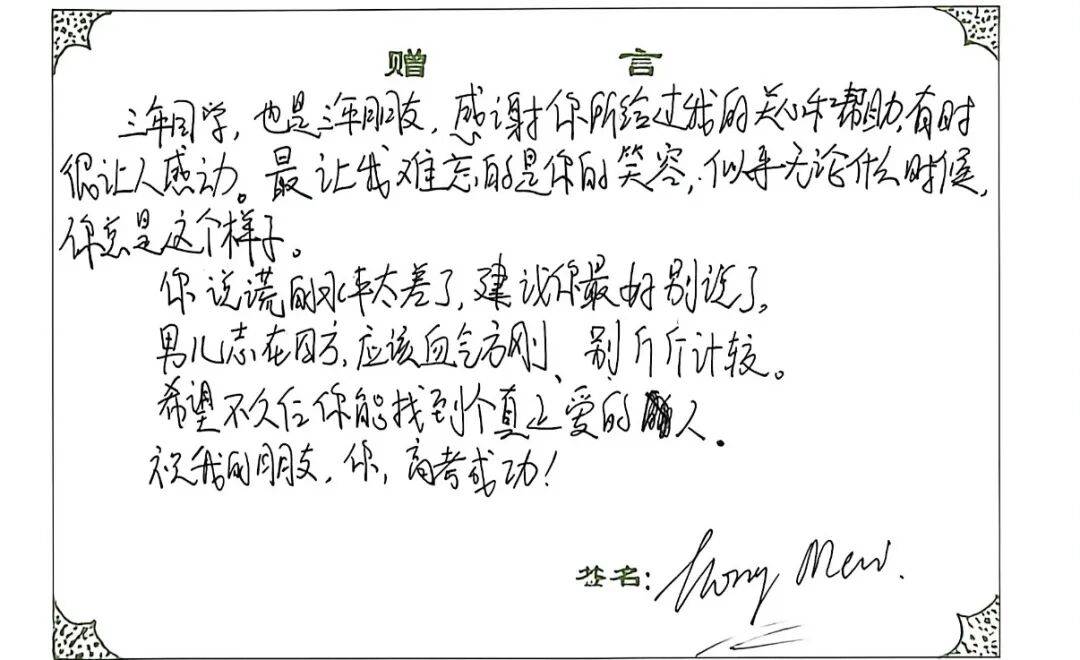 赠言
三年同学，也是三年朋友，感谢你所给过我的关心和帮助，有时
很让人感动。最让我难忘的是你的笑容，似乎无论什么时候，
你总是这个样子。
你说谎的水平太差了，建议你最好别说了。
男儿志在四方，应该血气方刚、别斤斤计较。
希望不久后你能找到个真正爱的人。
祝我的朋友，你，高考成功！
签名：